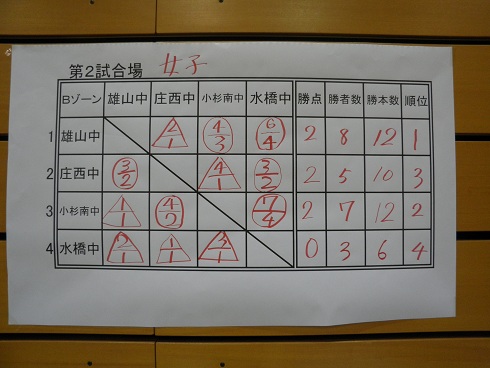 第2試合場 女子
Bゾーン 雄山中 庄西中 小杉南中 水橋中 勝点 勝者数 勝本数 順位
1 雄山中 2/1 4/3 6/4 2 8 12 1
2 庄西中 3/2 4/1 3/2 2 5 10 3
3 小杉南中 1/1 4/2 7/4 2 7 12 2
4 水橋中 2/1 1/1 3/1 0 3 6 4